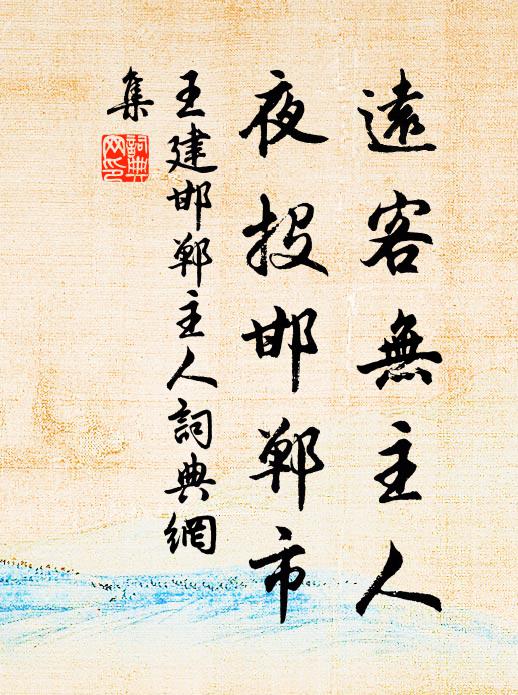 遠客無主人
夜投邯鄲市
王建邯鄲主人詞典網
集
詞典
网印